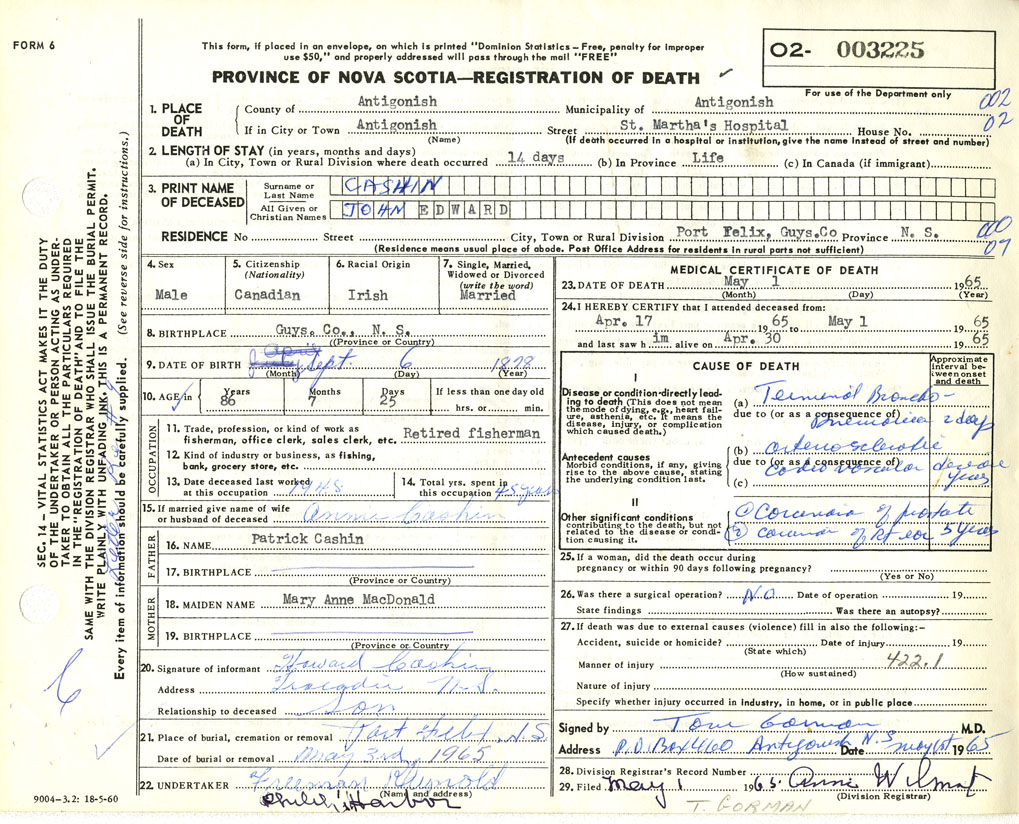 FORM 6
This form, if placed in an envelope, on which is printed "Dominion Statistics – Free, penalty for improper
use $50," and properly addressed will pass through the mail "FREE"
PROVINCE OF NOVA SCOTIA—REGISTRATION OF DEATH
O2- 003225
For use of the Department only
1. PLACE OF DEATH
County of Antigonish Municipality of Antigonish 002
If in City or Town Antigonish Street St. Martha's Hospital House No. 02
(Name) (If death occurred in a hospital or institution, give the name instead of street and number)
2. LENGTH OF STAY (in years, months and days)
(a) In City, Town or Rural Division where death occurred 14 days (b) In Province Life (c) In Canada (if immigrant)
3. PRINT NAME OF DECEASED
Surname or Last Name CASHIN
All Given or Christian Names JOHN EDWARD
RESIDENCE No Street City, Town or Rural Division Port Felix, Guys.Co Province N. S. 000
07
(Residence means usual place of abode. Post Office Address for residents in rural parts not sufficient)
4. Sex Male
5. Citizenship (Nationality) Canadian
6. Racial Origin Irish
7. Single, Married, Widowed or Divorced (write the word) Married
8. BIRTHPLACE Guys. Co., N. S.
(Province or Country)
9. DATE OF BIRTH Sept. 6 1878
(Month) (Day) (Year)
10. AGE in Years 86 Months 7 Days 25 If less than one day old hrs. or min.
OCCUPATION
11. Trade, profession, or kind of work as fisherman, office clerk, sales clerk, etc. Retired fisherman
12. Kind of industry or business, as fishing, bank, grocery store, etc.
13. Date deceased last worked at this occupation 1948
14. Total yrs. spent in this occupation 45 years
15. If married give name of wife or husband of deceased Annie Cashin
FATHER
16. NAME Patrick Cashin
17. BIRTHPLACE
(Province or Country)
MOTHER
18. MAIDEN NAME Mary Anne MacDonald
19. BIRTHPLACE
(Province or Country)
20. Signature of informant Howard Cashin
Address Tracadie N.S.
Relationship to deceased Son
21. Place of burial, cremation or removal Port Felix, N.S.
Date of burial or removal May 3rd, 1965
22. UNDERTAKER Freeman
(Name and address)
Harbor
9004-3.2: 18-5-60
MEDICAL CERTIFICATE OF DEATH
23. DATE OF DEATH May 1 1965
(Month) (Day) (Year)
24. I HEREBY CERTIFY that I attended deceased from:
Apr. 17 1965 to May 1 1965
and last saw h im alive on Apr. 30 1965
CAUSE OF DEATH
Approximate interval between onset and death
I
Disease or condition directly leading to death (This does not mean the mode of dying, e.g., heart failure, asthenia, etc. It means the disease, injury, or complication which caused death.)
(a) Terminal Broncho-
due to (or as a consequence of)
pneumonia 2 days
Antecedent causes
Morbid conditions, if any, giving rise to the above cause, stating the underlying condition last.
(b) arteriosclerotic
due to (or as a consequence of)
cardiovascular disease
(c) years
II
Other significant conditions
contributing to the death, but not related to the disease or condition causing it.
① Carcinoma of prostate
② carcinoma of rt ear 5 years
25. If a woman, did the death occur during
pregnancy or within 90 days following pregnancy?
(Yes or No)
26. Was there a surgical operation? NO Date of operation 19
State findings Was there an autopsy?
27. If death was due to external causes (violence) fill in also the following:–
Accident, suicide or homicide? Date of injury 19
(State which)
Manner of injury 422.1
(How sustained)
Nature of injury
Specify whether injury occurred in industry, in home, or in public place
Signed by Tom Gorman M.D.
Address P.O. Box 460 Antigonish N.S Date May 1st 1965
28. Division Registrar's Record Number
29. Filed May 1 1965 Anne Wilmot
(Division Registrar)
T. GORMAN
SEC. 14 – VITAL STATISTICS ACT MAKES IT THE DUTY
OF THE UNDERTAKER OR PERSON ACTING AS UNDER-
TAKER TO OBTAIN ALL THE PARTICULARS REQUIRED
IN THE "REGISTRATION OF DEATH" AND TO FILE THE
SAME WITH THE DIVISION REGISTRAR WHO SHALL ISSUE THE BURIAL PERMIT.
WRITE PLAINLY WITH UNFADING INK. THIS IS A PERMANENT RECORD.
Every item of information should be carefully supplied. (See reverse side for instructions.)